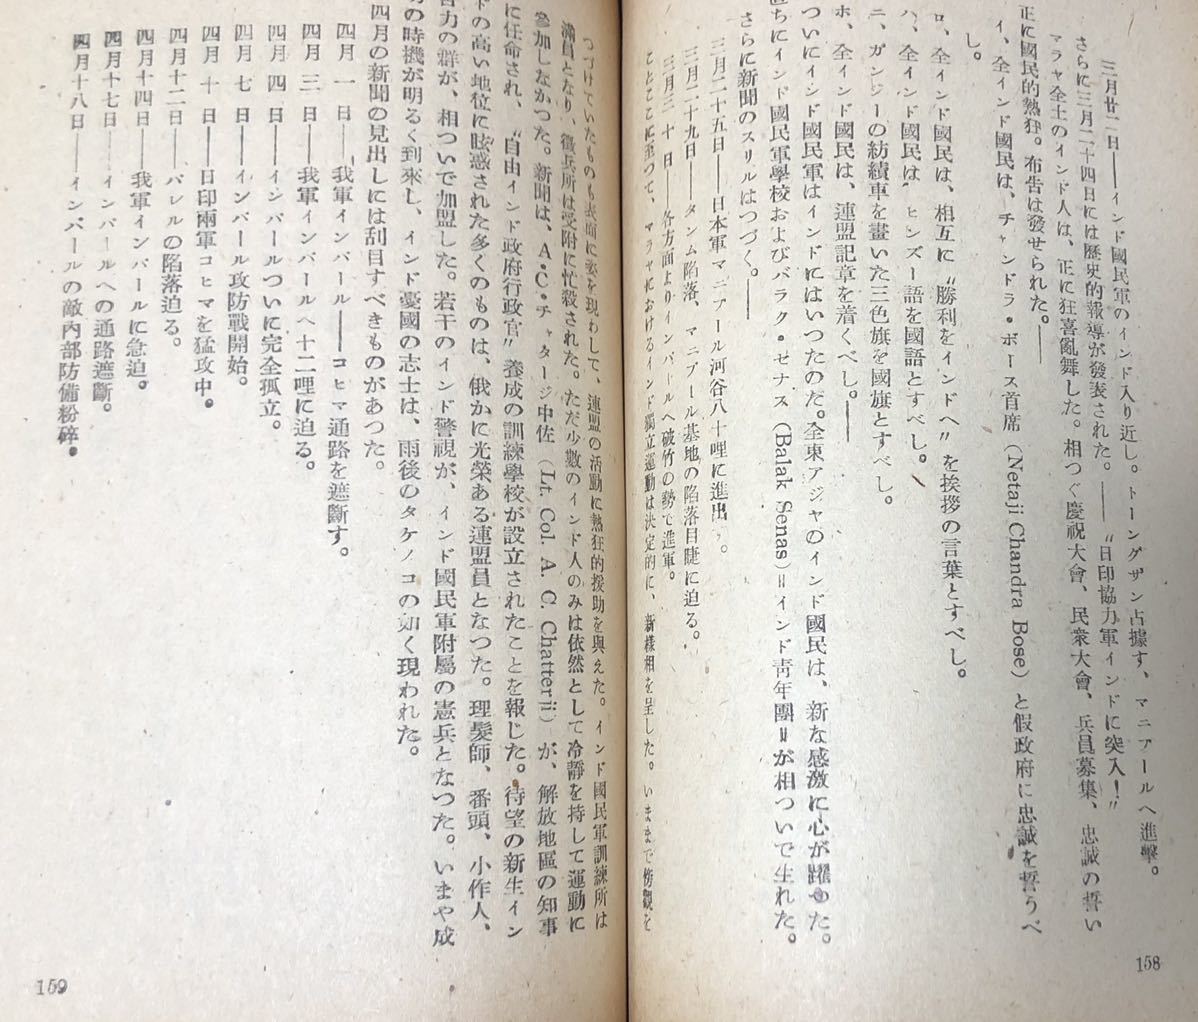 三月廿二日――インド國民軍のインド入り近し。トーングザン占據す、マニプールへ進撃。
さらに三月二十四日には歷史的報導が發表された。――“日印協力軍インドに突入！”
マラヤ全土のインド人は、正に狂喜亂舞した。相つぐ慶祝大會、民衆大會、兵員募集、忠誠の誓い
正に國民的熱狂。布告は發せられた。――
イ、全インド國民は、チャンドラ・ボース首席（Netaji Chandra Bose）と假政府に忠誠を誓うべ
し。
ロ、全インド國民は、相互に“勝利をインドへ”を挨拶の言葉とすべし。
ハ、全インド國民は、ヒンズー語を國語とすべし。
ニ、ガンジーの紡績車を畫いた三色旗を國旗とすべし。
ホ、全インド國民は、連盟記章を着くべし。――
ついにインド國民軍はインドにはいつたのだ。全東アジヤのインド國民は、新な感激に心が躍つた。
直ちにインド國民軍學校およびバラク・セナス（Balak Senas）＝インド靑年團＝が相ついで生れた。
さらに新聞のスリルはつづく。――
三月二十五日――日本軍マニプール河谷八十哩に進出。
三月二十九日――タンム陷落、マニプール基地の陷落目睫に迫る。
三月三十日――各方面よりインパールへ破竹の勢で進軍。
ことここに至つて、マラヤにおけるインド獨立運動は決定的に、新樣相を呈した。いままで傍觀を
158
つづけていたものも表面に姿を現わして、連盟の活動に熱狂的援助を與えた。インド國民軍訓練所は
滿員となり、徵兵所は受附に忙殺された。ただ少數のインド人のみは依然として冷靜を持して運動に
參加しなかつた。新聞は、A・C・チャタージ中佐（Lt. Col. A. C. Chatterji）が、解放地區の知事
に任命され、“自由インド政府行政官”養成の訓練學校が設立されたことを報じた。待望の新生イン
ドの高い地位に眩惑された多くのものは、俄かに光榮ある連盟員となつた。理髮師、番頭、小作人、
苦力の群が、相ついで加盟した。若干のインド警視が、インド國民軍附屬の憲兵となつた。いまや成
功の時機が明るく到來し、インド憂國の志士は、雨後のタケノコの如く現われた。
四月の新聞の見出しには刮目すべきものがあつた。
四月一日――我軍インパール――コヒマ通路を遮斷す。
四月三日――我軍インパールへ十二哩に迫る。
四月四日――インパールついに完全孤立。
四月七日――インパール攻防戰開始。
四月十日――日印兩軍コヒマを猛攻中。
四月十二日――パレルの陷落迫る。
四月十四日――我軍インパールに急迫。
四月十七日――インパールへの通路遮斷。
四月十八日――インパールの敵內部防備粉碎。
159